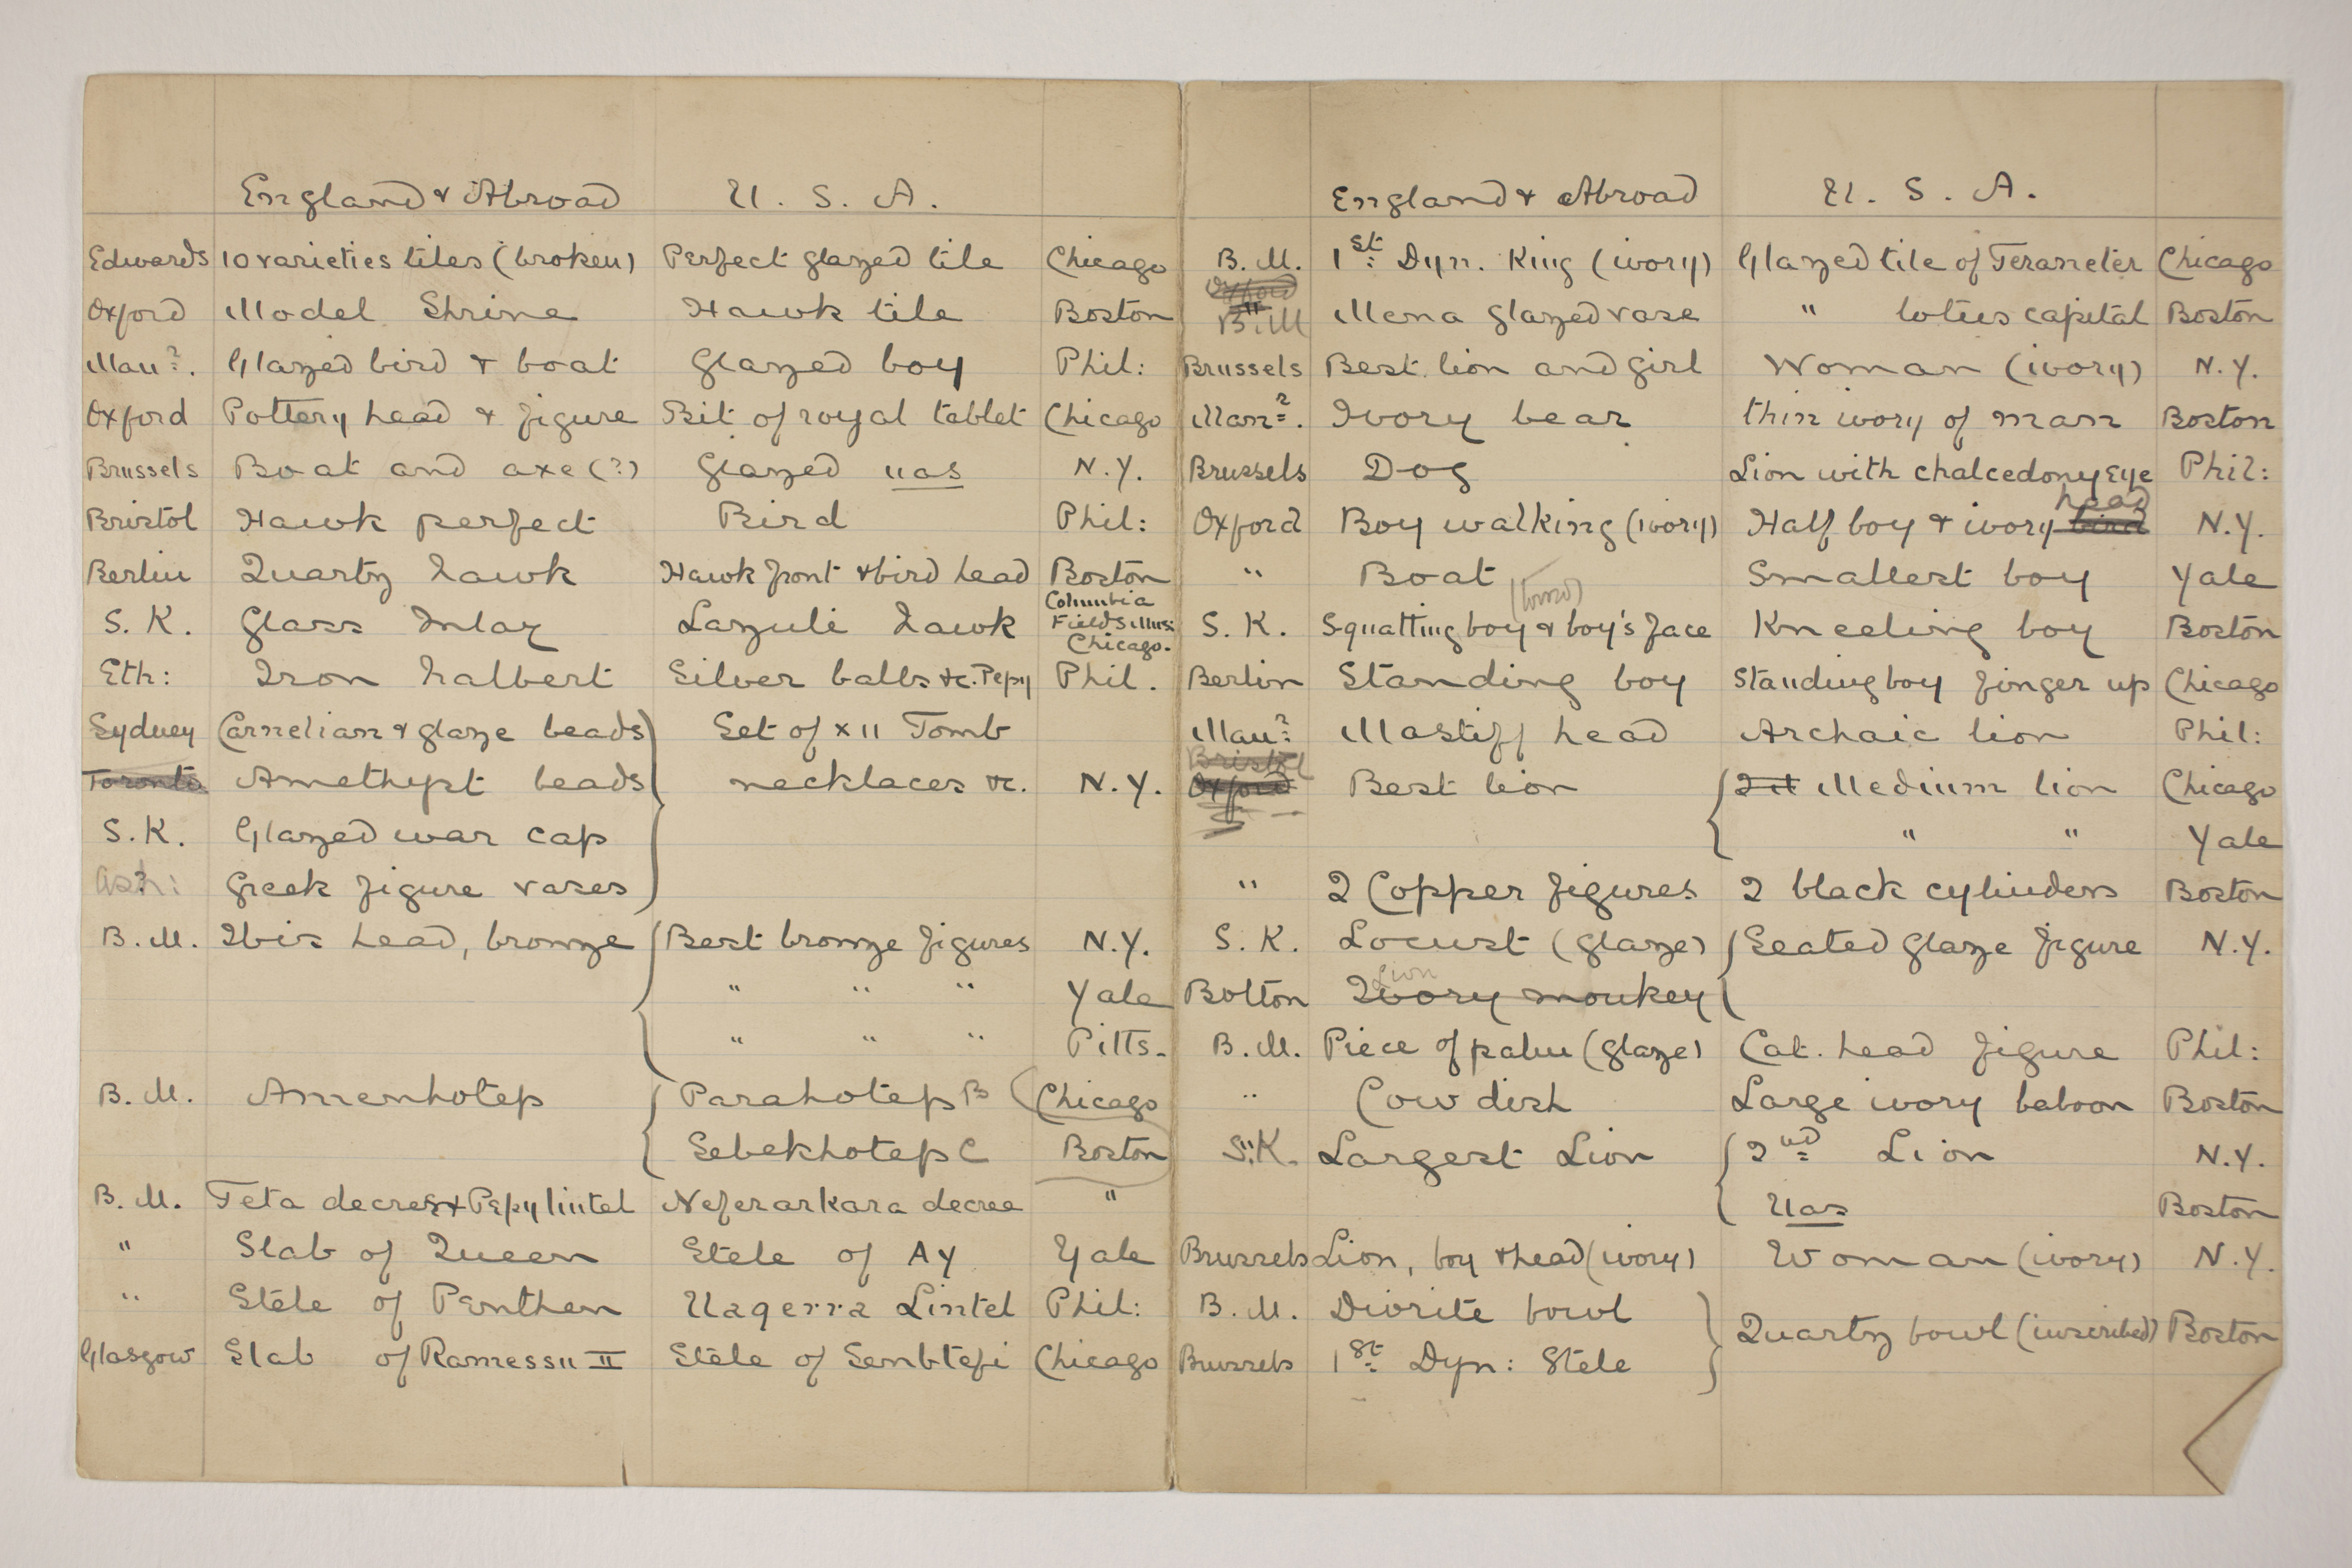 England & Abroad U. S. A.
Edwards 10 varieties tiles (broken) Perfect glazed tile Chicago
Oxford Model Shrine Hawk tile Boston
Man?. Glazed bird & boat Glazed boy Phil:
Oxford Pottery head & figure Bit of royal tablet Chicago
Brussels Boat and axe (?) Glazed uas N.Y.
Bristol Hawk perfect Bird Phil:
Berlin Quartz hawk Hawk front & bird head Boston
S. K. Glass Inlay Lazuli hawk Columbia Field Mus: Chicago.
Eth: Iron halbert Silver balls &c. Pepy Phil.
Sydney Carnelian & glaze beads Set of XII Tomb
Toronto Amethyst beads necklaces &c. N.Y.
S.K. Glazed war cap
Ash: Greek figure vases
B.M. Ibis head, bronze Best bronze figures N.Y.
" " " Yale
" " " Pitts.
B.M. Amenhotep Parahotep B Chicago
Sebekhotep C Boston
B.M. Teta decree & Pepy lintel Neferarkara decree "
" Slab of Queen Stele of Ay Yale
" Stele of Penthen Uaqerra Lintel Phil:
Glasgow Slab of Ramessu II Stele of Sembtefi Chicago
England & Abroad U. S. A.
B.M. 1st Dyn. King (ivory) Glazed tile of Teraneter Chicago
Oxford
" B.M Mena glazed vase " lotus capital Boston
Brussels Best lion and girl Woman (ivory) N.Y.
Man?. Ivory bear thin ivory of man Boston
Brussels Dog Lion with chalcedony eye Phil:
head
Oxford Boy walking (ivory) Half boy & ivory bird N.Y.
" Boat Smallest boy Yale
S. K. Squatting boy & boy's face Kneeling boy Boston
Berlin Standing boy Standing boy finger up Chicago
Man? Mastiff head Archaic lion Phil:
Bristol
Oxford Best lion Medium lion Chicago
" " Yale
" 2 Copper figures 2 black cylinders Boston
S. K. Locust (glaze) Seated glaze figure N.Y.
Lion
Bolton Ivory monkey
B.M. Piece of palm (glaze) Cat. head figure Phil:
" Cow dish Large ivory baboon Boston
" S.K. Largest Lion 2nd Lion N.Y.
Uas Boston
Brussels Lion, boy & head (ivory) Woman (ivory) N.Y.
B.M. Diorite bowl Quartz bowl (inscribed) Boston
Brussels 1st Dyn: Stele